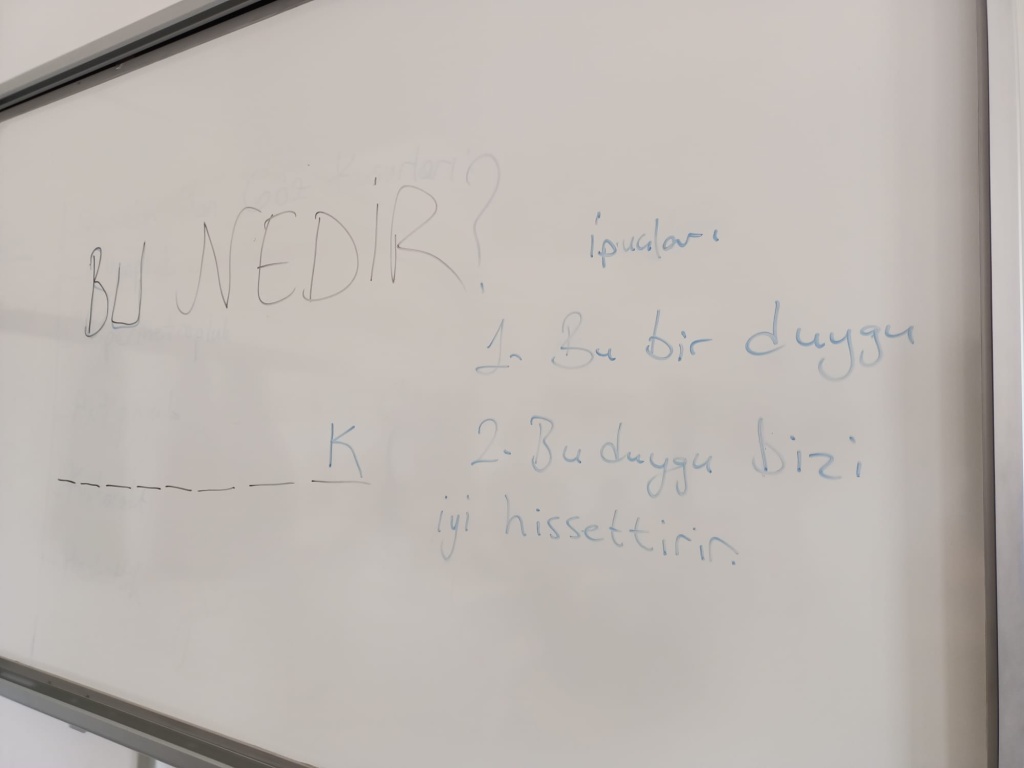 BU NEDİR?
ipuçları
1. Bu bir duygu
K
2. Bu duygu bizi
iyi hissettirir.